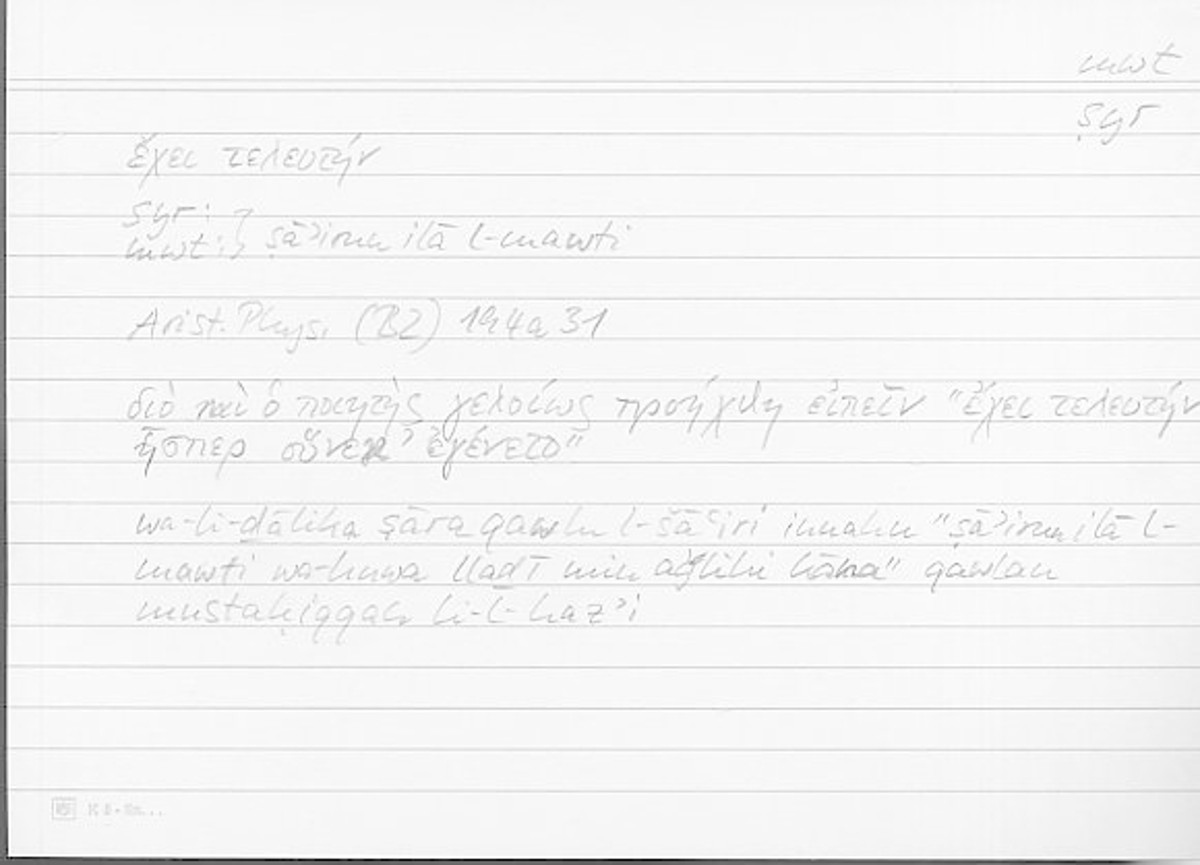 mwt
ṣyr
ἔχει τελευτήν
ṣyr: }
mwt: } ṣāʾirun ilā l-mawti
Arist. Phys. (B2) 194a31
διὸ καὶ ὁ ποιητὴς γελοίως προήχθη εἰπεῖν "ἔχει τελευτήν
ἧσπερ οὕνεκ' ἐγένετο"
wa-li-ḏālika ṣāra qawlu l-šāʿiri innahu "ṣāʾirun ilā l-
mawti wa-huwa llaḏī min aǧlihi kāna" qawlan
mustaḥiqqan li-l-hazʾi